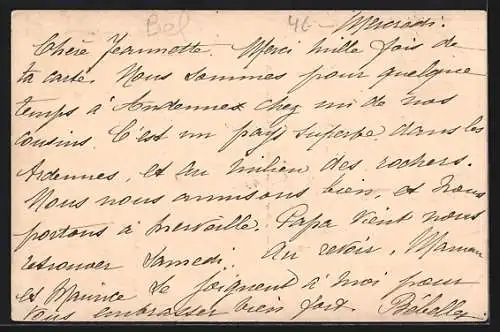 Bel 46 – Mercredi.
Chère Jeannette. Merci mille fois de
ta carte. Nous sommes pour quelque
temps à Andennes chez un de nos
cousins. C'est un pays superbe dans les
Ardennes, et au milieu des rochers.
Nous nous amusons bien, et nous
portons à merveille. Papa vient nous
retrouver Samedi. Au revoir, Maman
et Maurice se joignent à moi pour
vous embrasser bien fort.